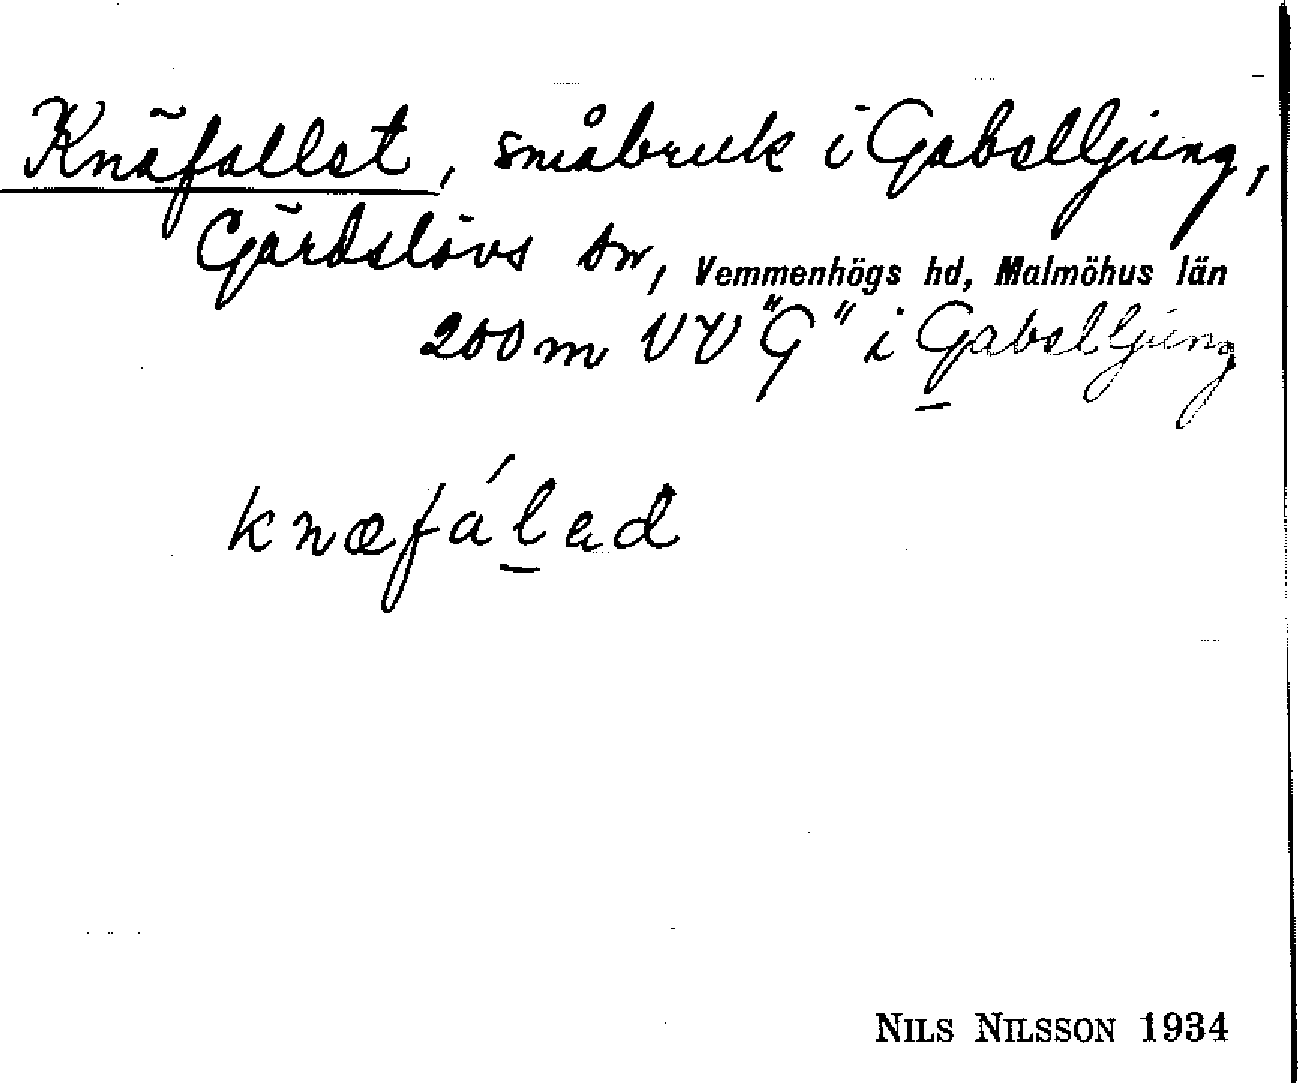 Knäfallet, småbruk i Gabelljung,
Gärdslövs sn, Vemmenhögs hd, Malmöhus län
200 m VV "G" i Gabelljung
knæfál̲ad
NILS NILSSON 1934